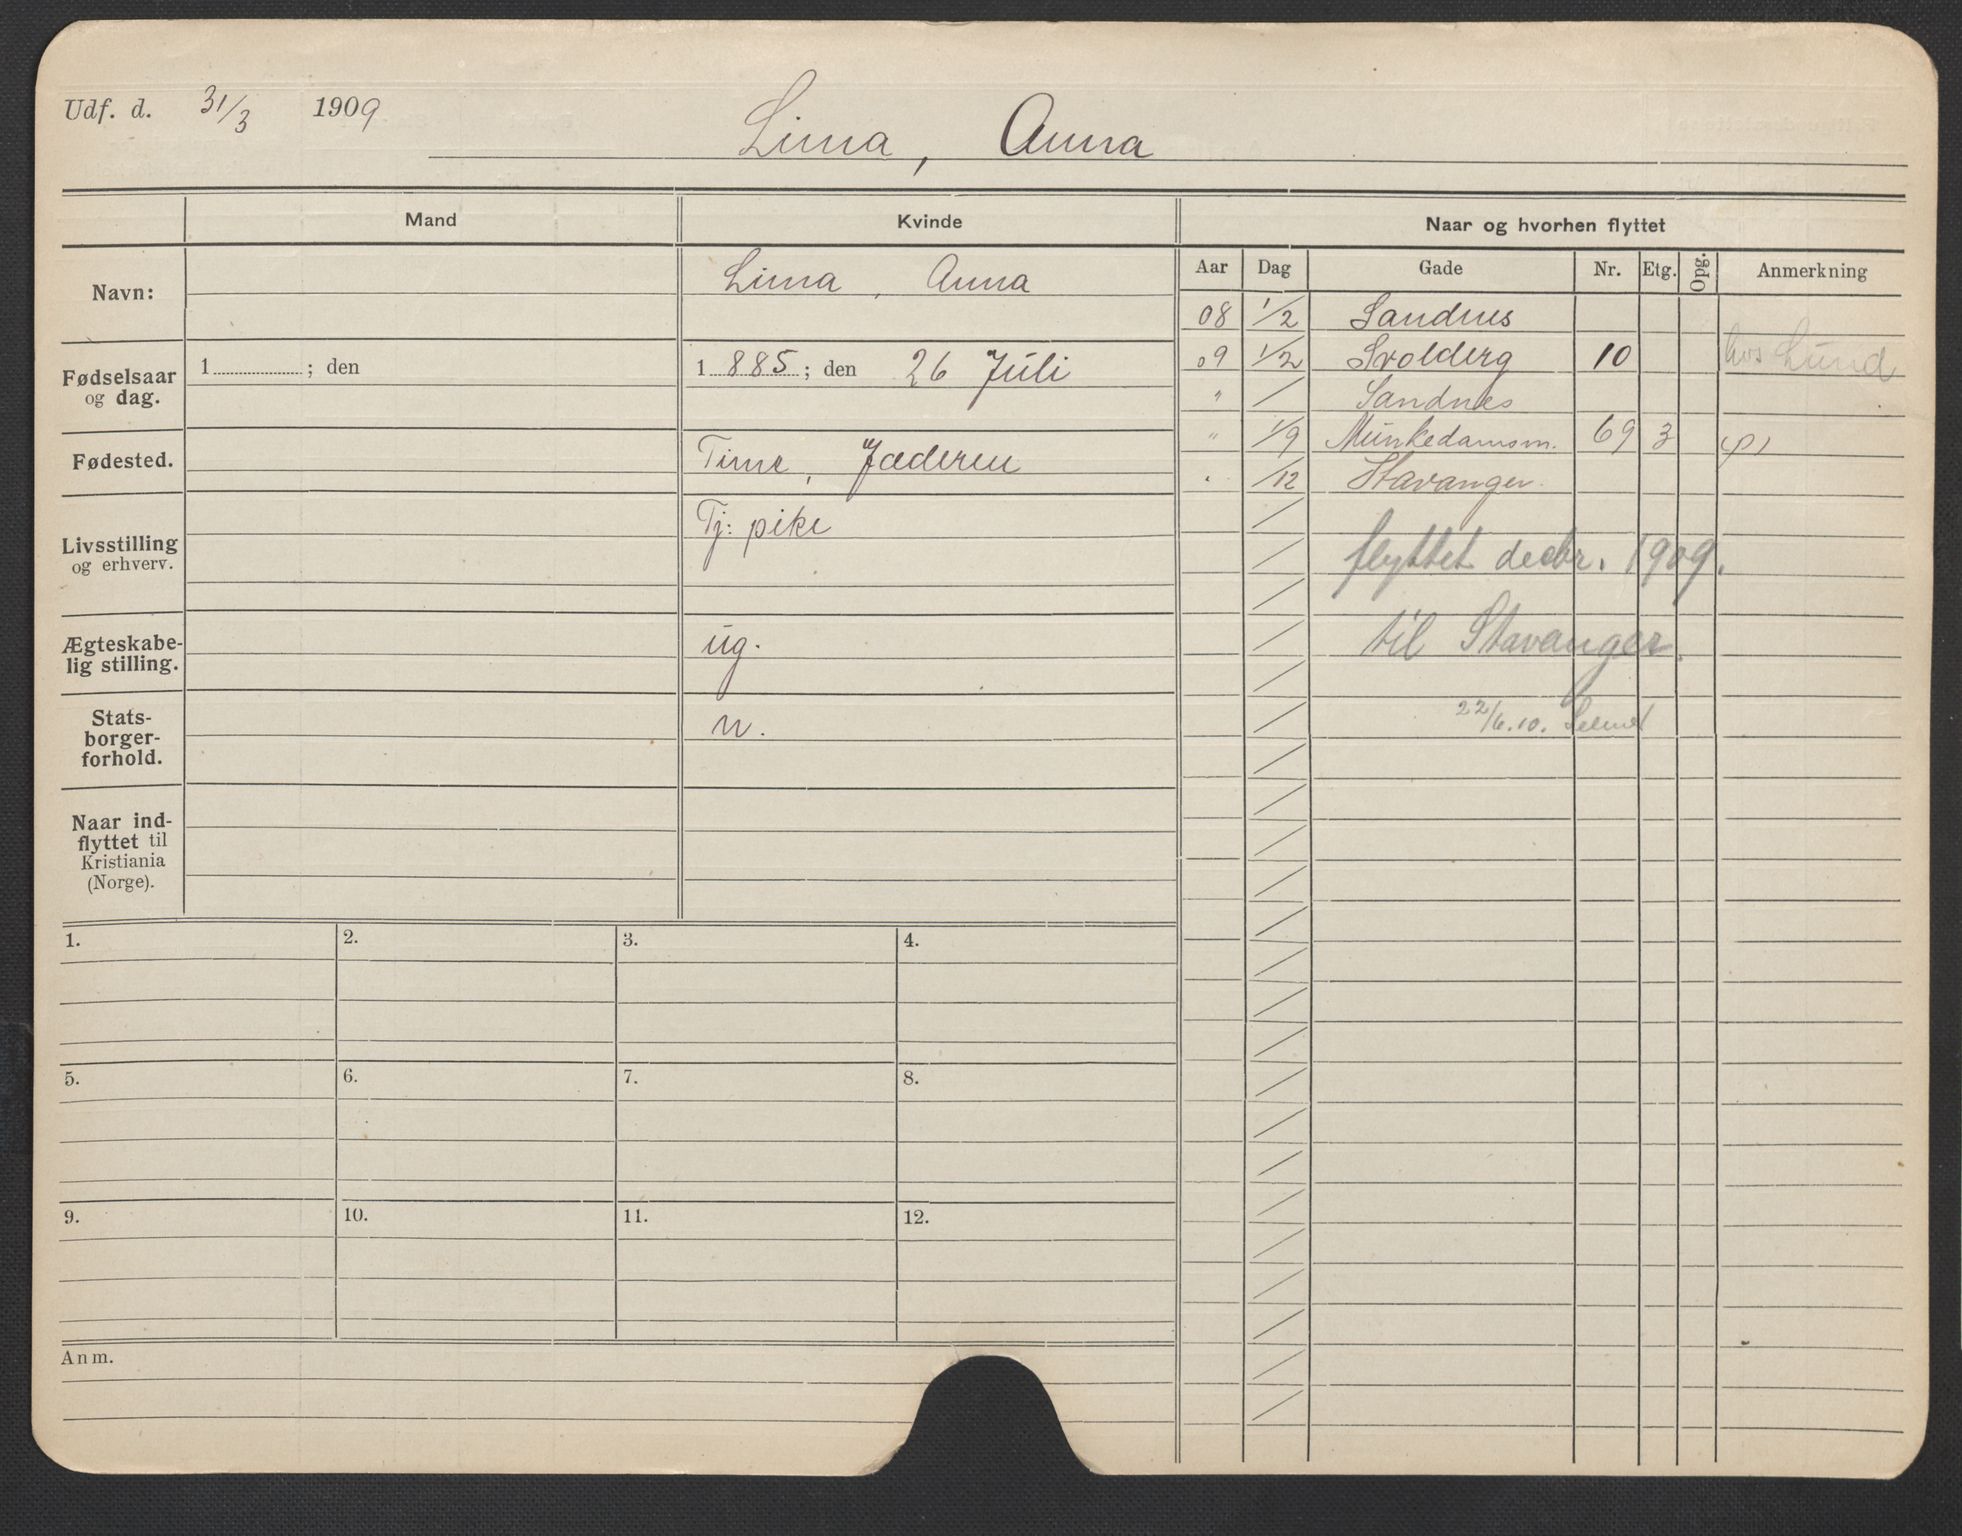 Udf. d. 31/3 1909
Lima, Anna
Mand Kvinde Naar og hvorhen flyttet
Aar Dag Gade Nr. Etg. Opg. Anmerkning
Navn: Lima, Anna
08 1/2 Sandnes
09 1/2 Svolderg 10 hos Lund
Fødselsaar og dag. 1 ; den 1 885 ; den 26 Juli
" / Sandnes
" 1/9 Munkedamsv. 69 3
Fødested. Time, Jæderen
" /12 Stavanger.
Livsstilling og erhverv. Tj: pike
flyttet decbr. 1909.
til Stavanger.
Ægteskabe-
lig stilling. ug.
22/6.10.
Stats-
borger-
forhold. n.
Naar ind-
flyttet til
Kristiania
(Norge).
1. 2. 3. 4.
5. 6. 7. 8.
9. 10. 11. 12.
Anm.